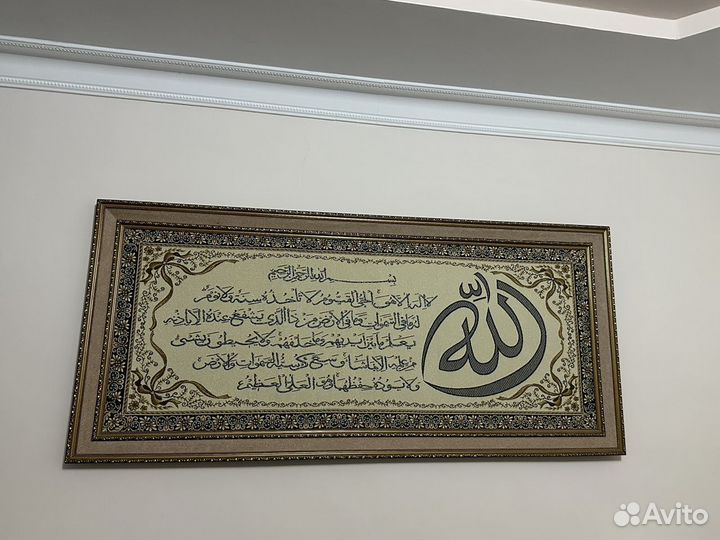 بسم الله الرحمن الرحيم
الله لا إله إلا هو الحي القيوم لا تأخذه سنة ولا نوم
له ما في السموات وما في الأرض من ذا الذي يشفع عنده إلا بإذنه
يعلم ما بين أيديهم وما خلفهم ولا يحيطون بشيء
من علمه إلا بما شاء وسع كرسيه السموات والأرض
ولا يؤده حفظهما وهو العلي العظيم
Avito